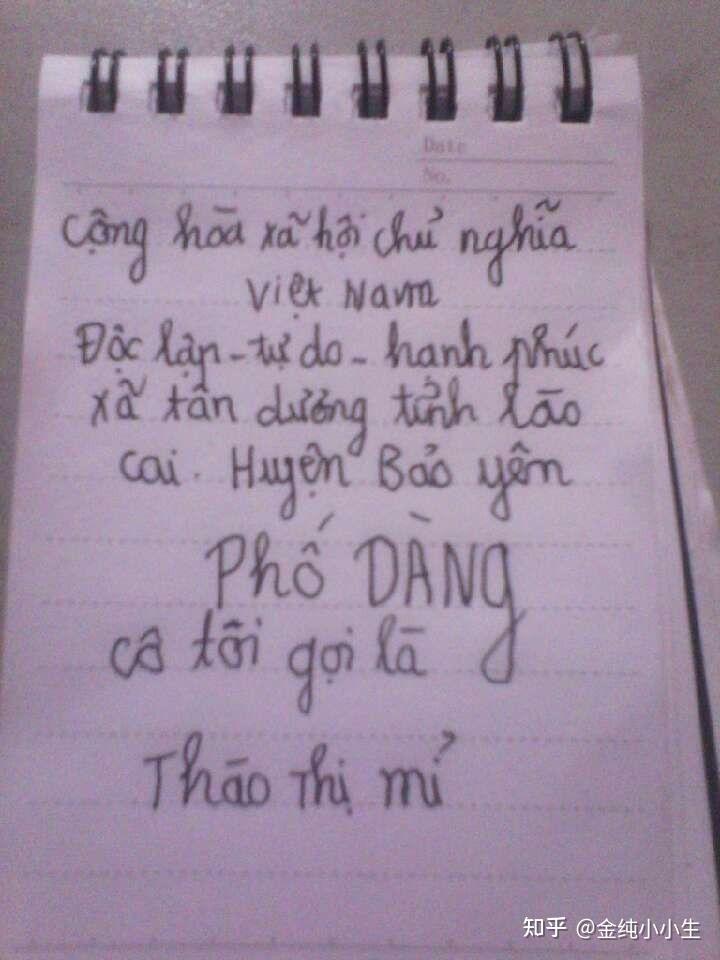 Date
No.
cộng hòa xã hội chủ nghĩa
Việt Nam
Độc lập - tự do - hạnh phúc
xã tân dương tỉnh lão
cai. Huyện Bảo yên
Phố DÀNg
cô tôi gọi lā
Thāo Thị mỉ
知乎 @金纯小小生